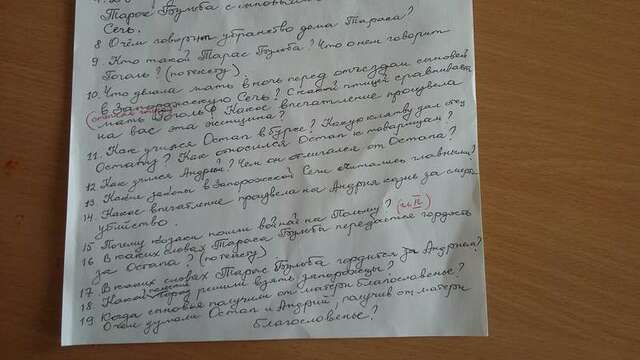 Тарас Бульба с сыновьями
Сечь.
8 О чём говорит убранство дома Тараса?
9. Кто такой Тарас Бульба? Что о нем говорит
Гоголь? (по тексту)
10. Что делала мать в ночь перед отъездом сыновей
в Запорожскую Сечь? С какой птицей сравнивает
мать Гоголь? Какое впечатление произвела
на вас эта женщина?
11. Как учился Остап в бурсе? Какую клятву дал отец
Остапу? Как относился Остап к товарищам?
12 Как учился Андрий? Чем он отличался от Остапа?
13 Какие законы в Запорожской Сечи считались главными?
14. Какое впечатление произвела на Андрия казнь за смерто
убийство.
15 Почему козаки пошли войной на Польшу? (и к)
16 В каких словах Тараса Бульбы передается гордость
за Остапа? (по тексту)
17 В каких словах Тарас Бульба гордится за Андрием?
18 Какой город решили взять запорожцы?
19 Когда сыновья получили от матери благословенье?
О чём думали Остап и Андрий, получив от матери
благословенье?